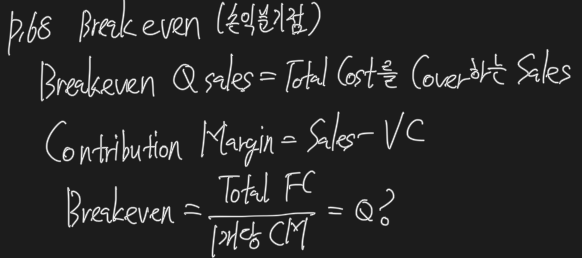 p.68 Breakeven (손익분기점)
Breakeven Q sales = Total Cost를 Cover하는 Sales
Contribution Margin = Sales - VC
Breakeven = Total FC / 1개당 CM = Q?